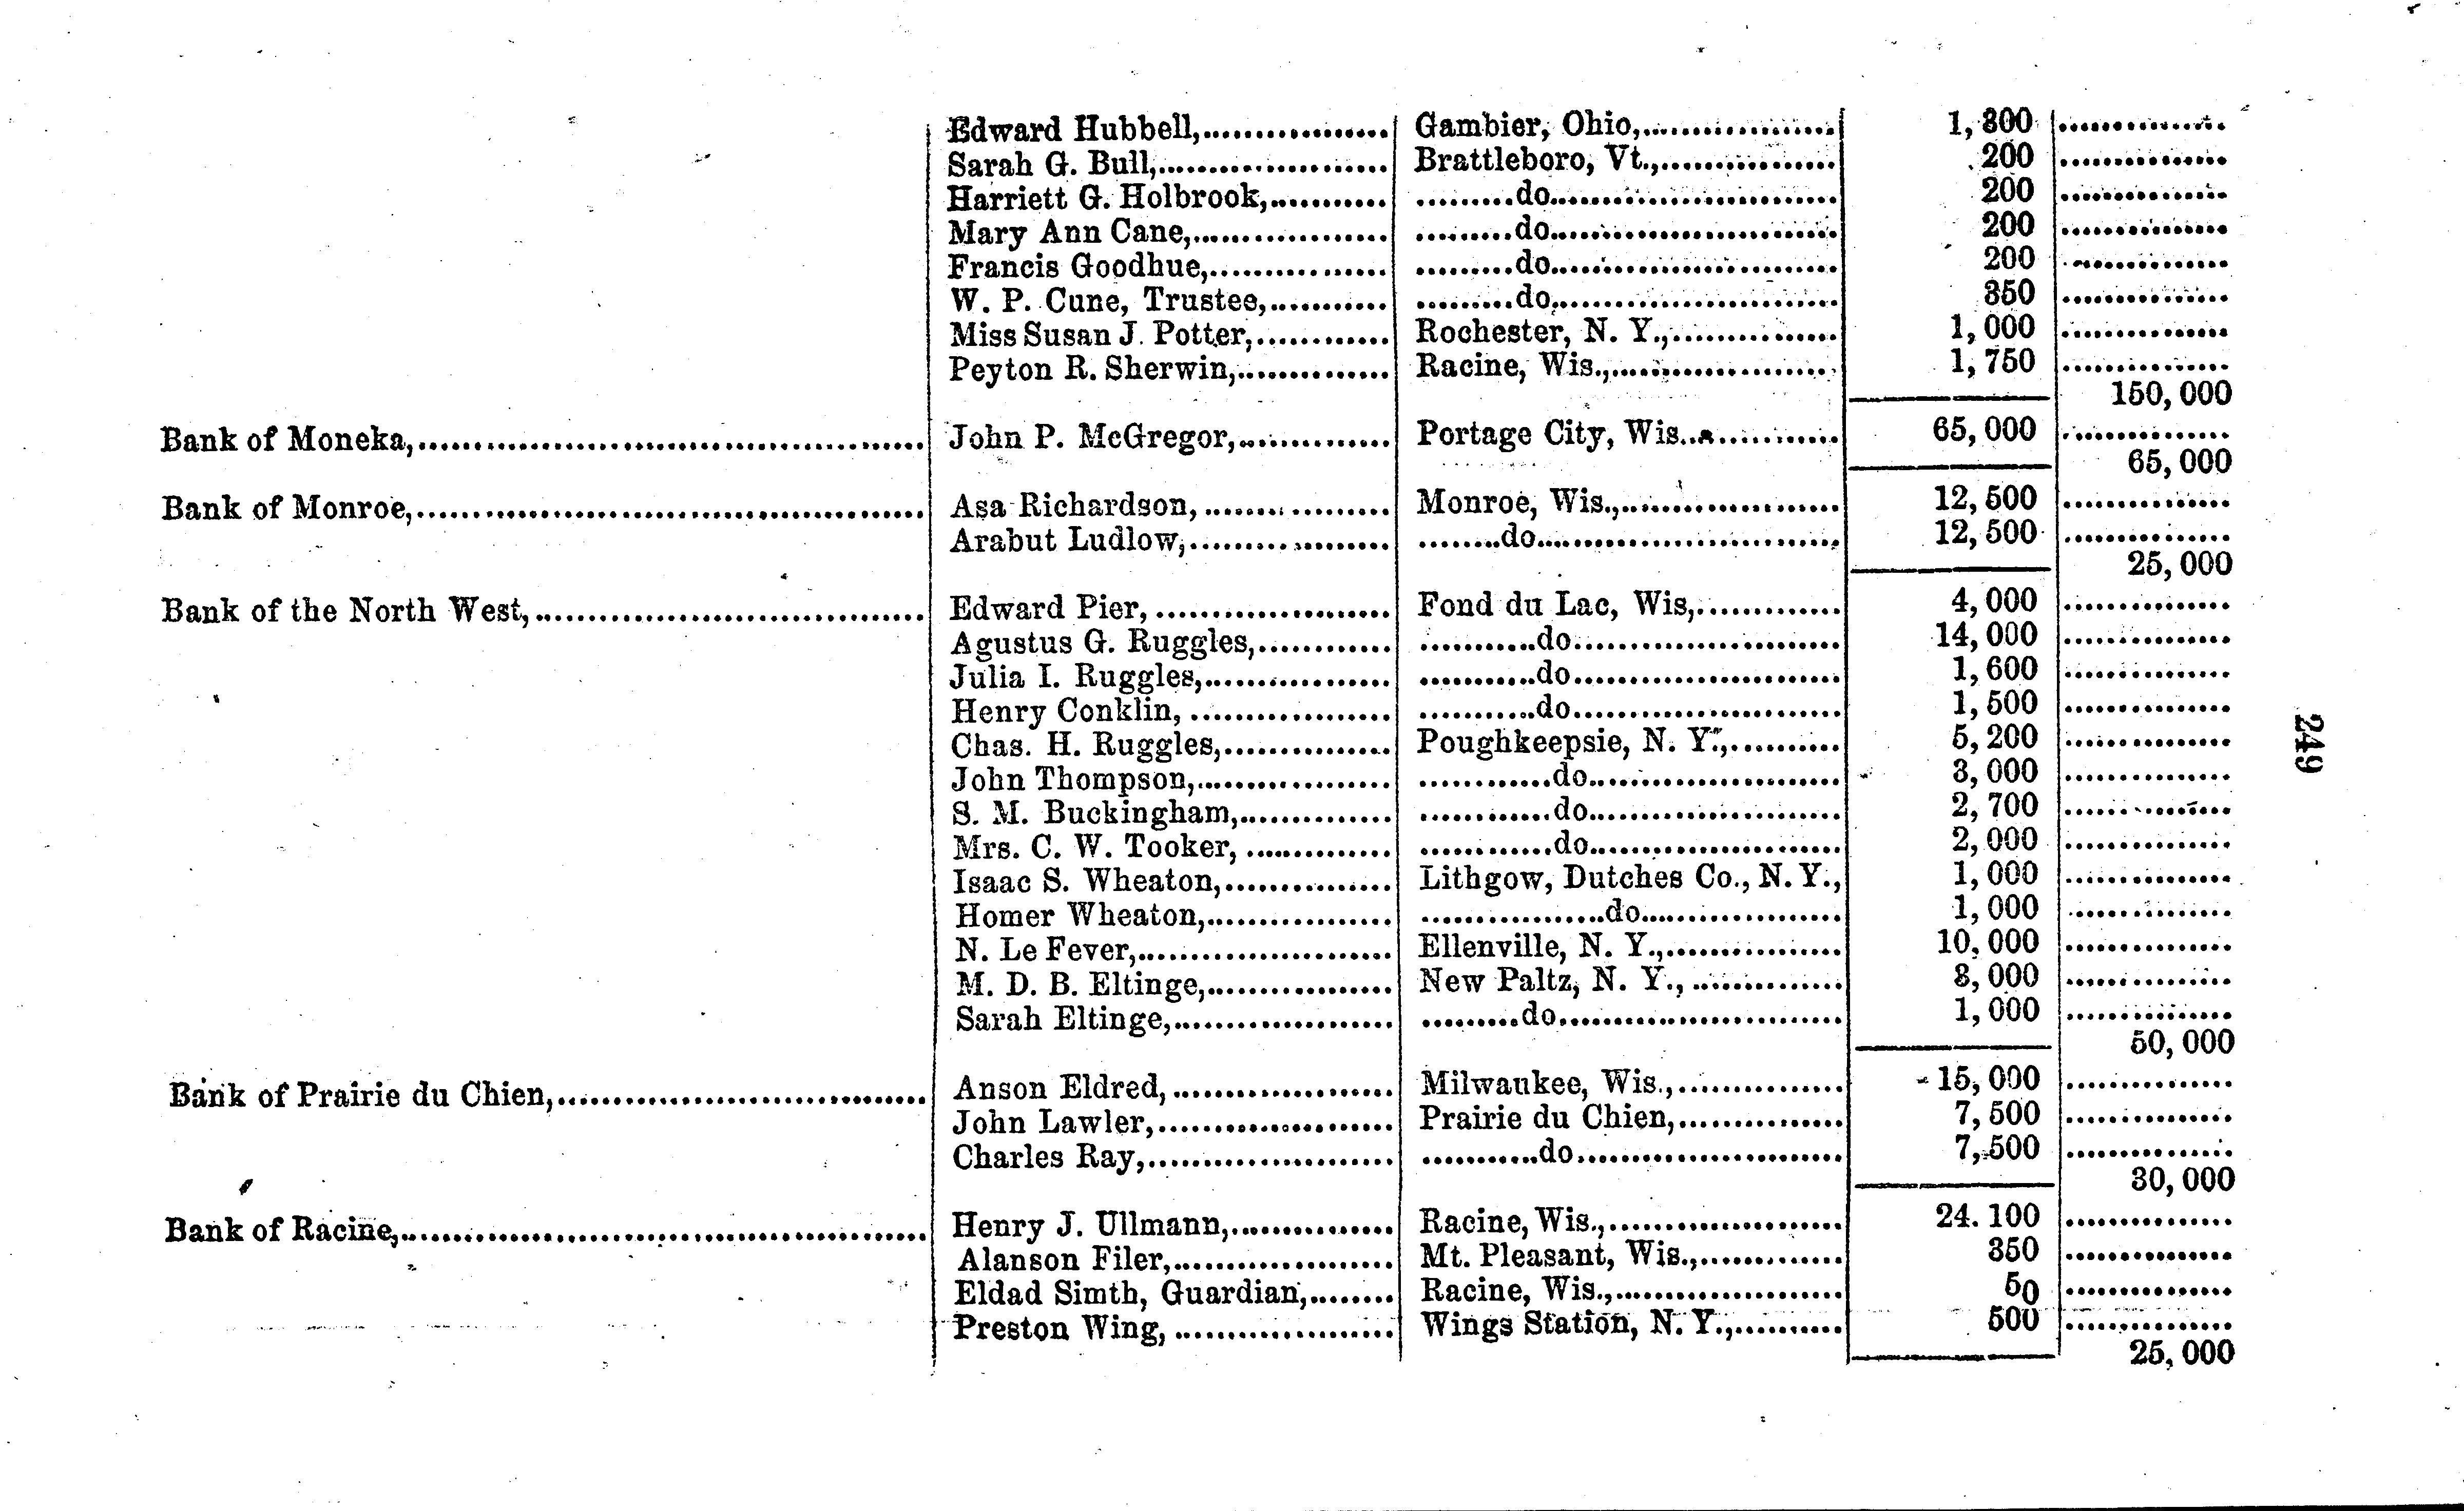 Edward Hubbell,................ Gambier, Ohio,................ 1, 300 ...............
Sarah G. Bull,..................... Brattleboro, Vt.,................ 200 ...............
Harriett G. Holbrook,........... .........do.......................... 200 ...............
Mary Ann Cane,.................. .........do.......................... 200 ...............
Francis Goodhue,................ .........do.......................... 200 ...............
W. P. Cune, Trustee,........... .........do.......................... 350 ...............
Miss Susan J. Potter,............ Rochester, N. Y.,............... 1, 000 ...............
Peyton R. Sherwin,.............. Racine, Wis.,.................... 1, 750 ...............
150, 000
Bank of Moneka,.............................................. John P. McGregor,.............. Portage City, Wis............... 65, 000 ...............
65, 000
Bank of Monroe,.............................................. Asa Richardson, ................. Monroe, Wis.,.................... 12, 500 ...............
Arabut Ludlow,................... ........do............................ 12, 500 ...............
25, 000
Bank of the North West,................................... Edward Pier, ...................... Fond du Lac, Wis,............. 4, 000 ...............
Agustus G. Ruggles,............ ...........do........................ 14, 000 ...............
Julia I. Ruggles,................. ...........do........................ 1, 600 ...............
Henry Conklin, ................... ...........do........................ 1, 500 ...............
Chas. H. Ruggles,............... Poughkeepsie, N. Y.,.......... 5, 200 ...............
John Thompson,.................. ............do....................... 3, 000 ...............
S. M. Buckingham,.............. ............do....................... 2, 700 ...............
Mrs. C. W. Tooker, .............. ............do....................... 2, 000 ...............
Isaac S. Wheaton,............... Lithgow, Dutches Co., N. Y., 1, 000 ...............
Homer Wheaton,................. .................do.................. 1, 000 ...............
N. Le Fever,....................... Ellenville, N. Y.,................ 10, 000 ...............
M. D. B. Eltinge,................. New Paltz, N. Y., .............. 3, 000 ...............
Sarah Eltinge,.................... .........do.......................... 1, 000 ...............
50, 000
Bank of Prairie du Chien,.................................. Anson Eldred, .................... Milwaukee, Wis.,............... 15, 000 ...............
John Lawler,...................... Prairie du Chien,............... 7, 500 ...............
Charles Ray,....................... ...........do........................ 7, 500 ...............
30, 000
Bank of Racine,................................................ Henry J. Ullmann,............... Racine, Wis.,..................... 24. 100 ...............
Alanson Filer,.................... Mt. Pleasant, Wis.,............. 350 ...............
Eldad Simth, Guardian,........ Racine, Wis.,..................... 50 ...............
Preston Wing, .................... Wings Station, N. Y.,.......... 500 ...............
25, 000
249